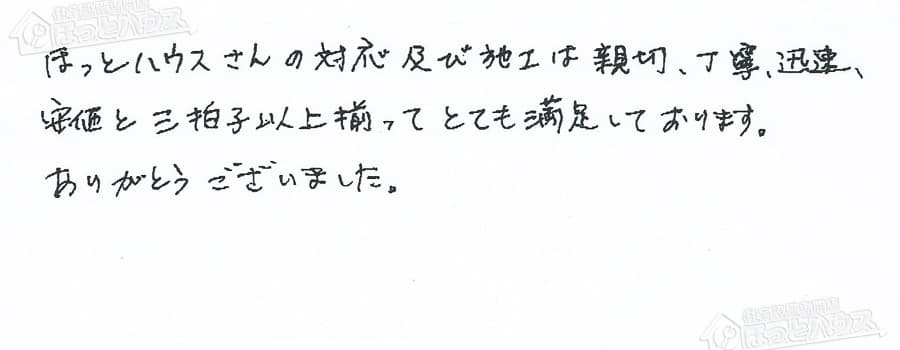 ほっとハウスさんの対応及び施工は親切、丁寧、迅速、
安価と三拍子以上揃ってとても満足しております。
ありがとうございました。
ほっとハウス
ほっとハウス